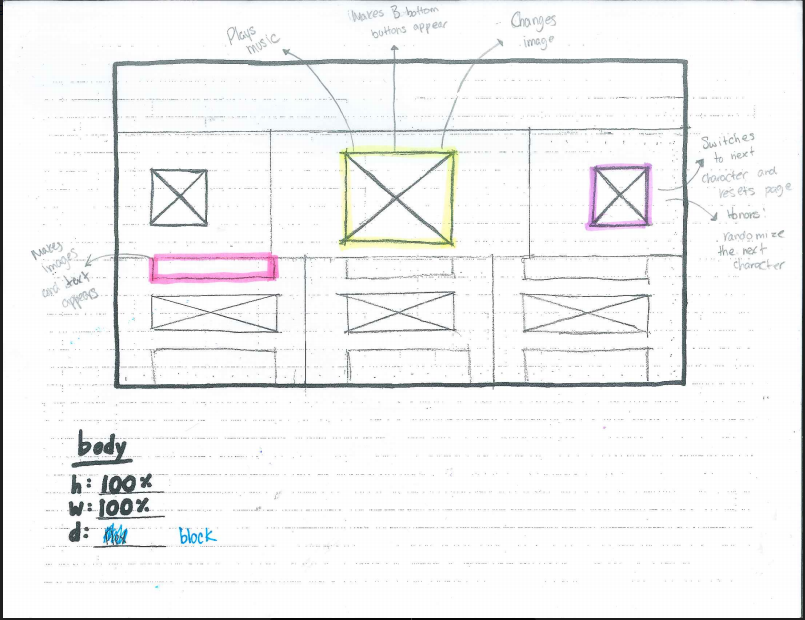 Plays
music
Makes 3 bottom
buttons appear
- Changes
image
Switches
to next
character and
resets page
Honors:
randomize
the next
character
Makes
images
and text
appears
body
h: 100%
w: 100%
d: block